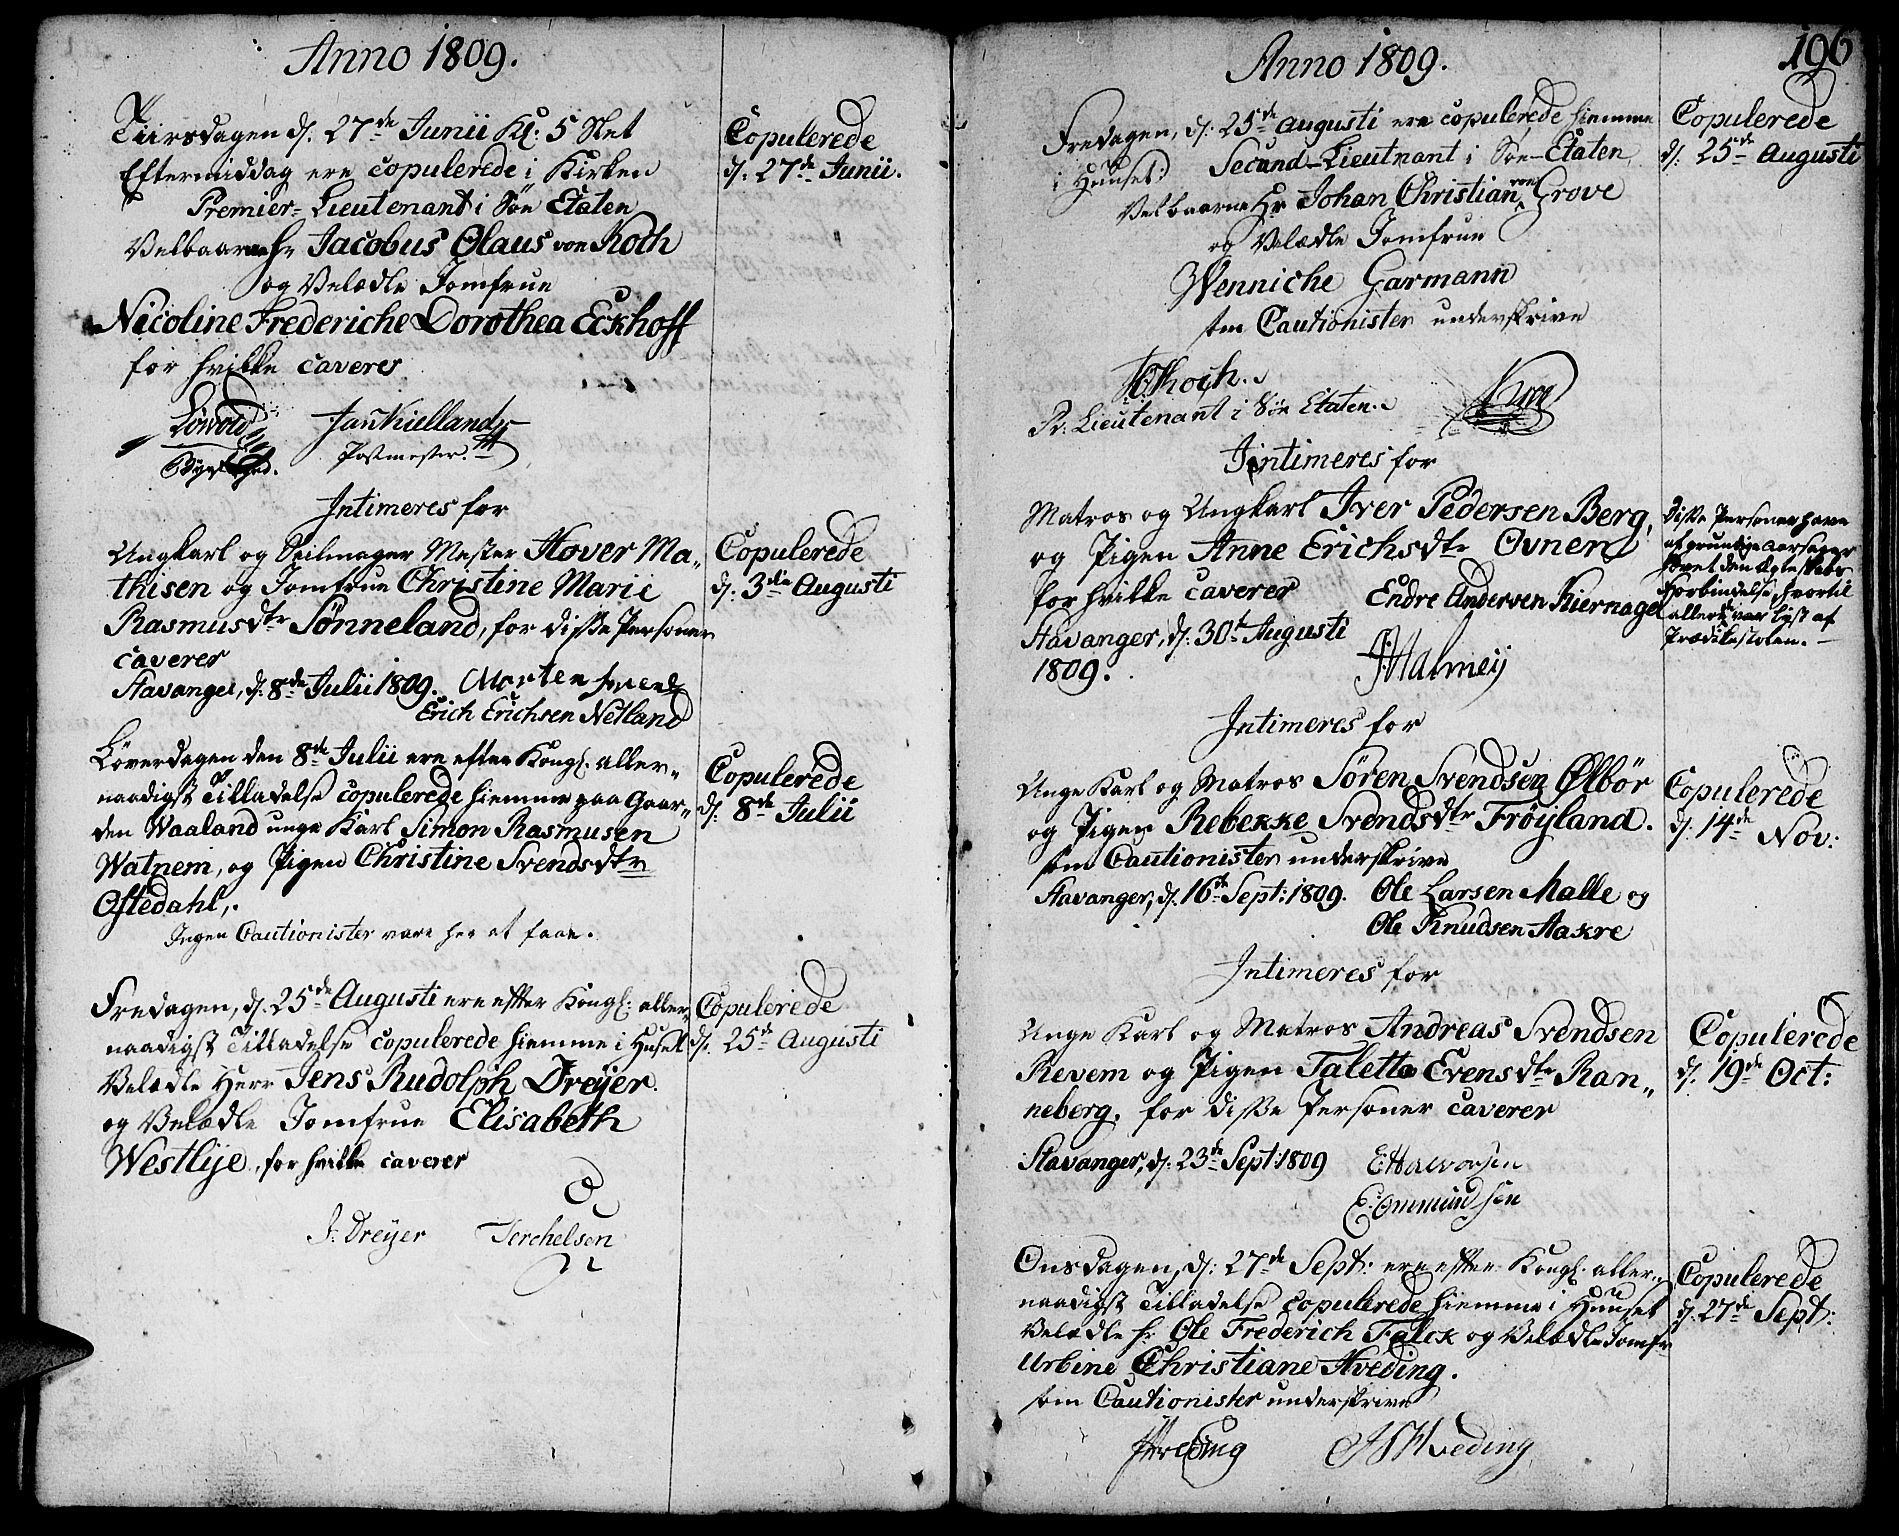 Anno 1809.
Tiirsdagen d: 27de Junii Kl: 5 Slet
Eftermiddag ere copulerede i Kirken
Premier-Lieutenant i Søe Etaten
Velbaarne Hr Jacobus Olaus von Koch
og Velædle Jomfrue
Nicoline Frederiche Dorothea Eckhoff
for hvilke caveres
Løwold Jan Kielland
Byefoged. Postmester.
Copulerede
d: 27de Junii.
Intimeres for
Ungkarl og Seilmager Mester Hover Ma-
thisen og Jomfrue Christine Marie
Rasmusdtr Sønneland, for disse Personer
caverer
Stavanger, d: 8de Julii 1809. Morten Svends
Erich Erichsen Netland
Copulerede
d: 3die Augusti
Løverdagen den 8de Julii ere efter Kongl. aller-
naadigst Tilladelse copulerede hiemme paa Gaar-
den Waaland unge Karl Simon Rasmusen
Watnem, og Pigen Christine Svendsdtr
Oftedahl,.
Ingen Cautionister vare her at faae.
Copulerede
d: 8de Julii
Fredagen, d: 25de Augusti ere efter Kongl: aller-
naadigst Tilladelse copulerede hiemme i Huset
Velædle Herr Jens Rudolph Dreyer.
og Velædle Jomfrue Elisabeth
Westlye, for hvilke caverer
J: Dreyer Terchelsen
Copulerede
d. 25de Augusti
196
Anno 1809.
Fredagen, d: 25de Augusti ere copulerede hiemme
i Huuset: Secund-Lieutnant i Søe-Etaten
Velbaarne Hr Johan Christian von Grove
og Velædle Jomfrue
Wenniche Garmann
som Cautionister underskrive
Koch.
Pr: Lieutenant i Søe Etaten.
Copulerede
d: 25de Augusti
Intimeres for
Matros og Ungkarl Iver Pedersen Berg,
og Pigen Anne Erichsdtr Ovnen
for hvilke caverer Endre Andersen Kiernagel
Stavanger, d: 30te Augusti
1809. Malmeij
Disse Personer have
af grundige Aarsager
hævet den Ægteskabs
Forbindelse, hvortil
allerede var lyst af
Prædikestolen.
Intimeres for
Unge Karl og Matros Søren Svendsen Ølbør
og Pigen Rebekke Svendsdtr Frøyland.
som Cautionister underskrive
Stavanger, d: 16de Sept: 1809. Ole Larsen Malle og
Ole Knudsen Aakre
Copulerede
d: 14de Nov:
Intimeres for
Unge Karl og Matros Andreas Svendsen
Revem og Pigen Taletta Evensdtr Ran-
neberg, for disse Personer caverer
Stavanger, d: 23de Sept: 1809 E Halvorsen
E: Ommundsen
Copulerede
d. 19de Oct:
Onsdagen, d: 27de Sept: ere efter Kongl: aller-
naadigst Tilladelse copulerede hiemme i Huuset
Velædle Hr Ole Frederich Falck og Velædle Jomfr
Urbine Christiane Hveding.
som Cautionister underskrive
Hveding Hveding
Copulerede
d. 27de Sept: